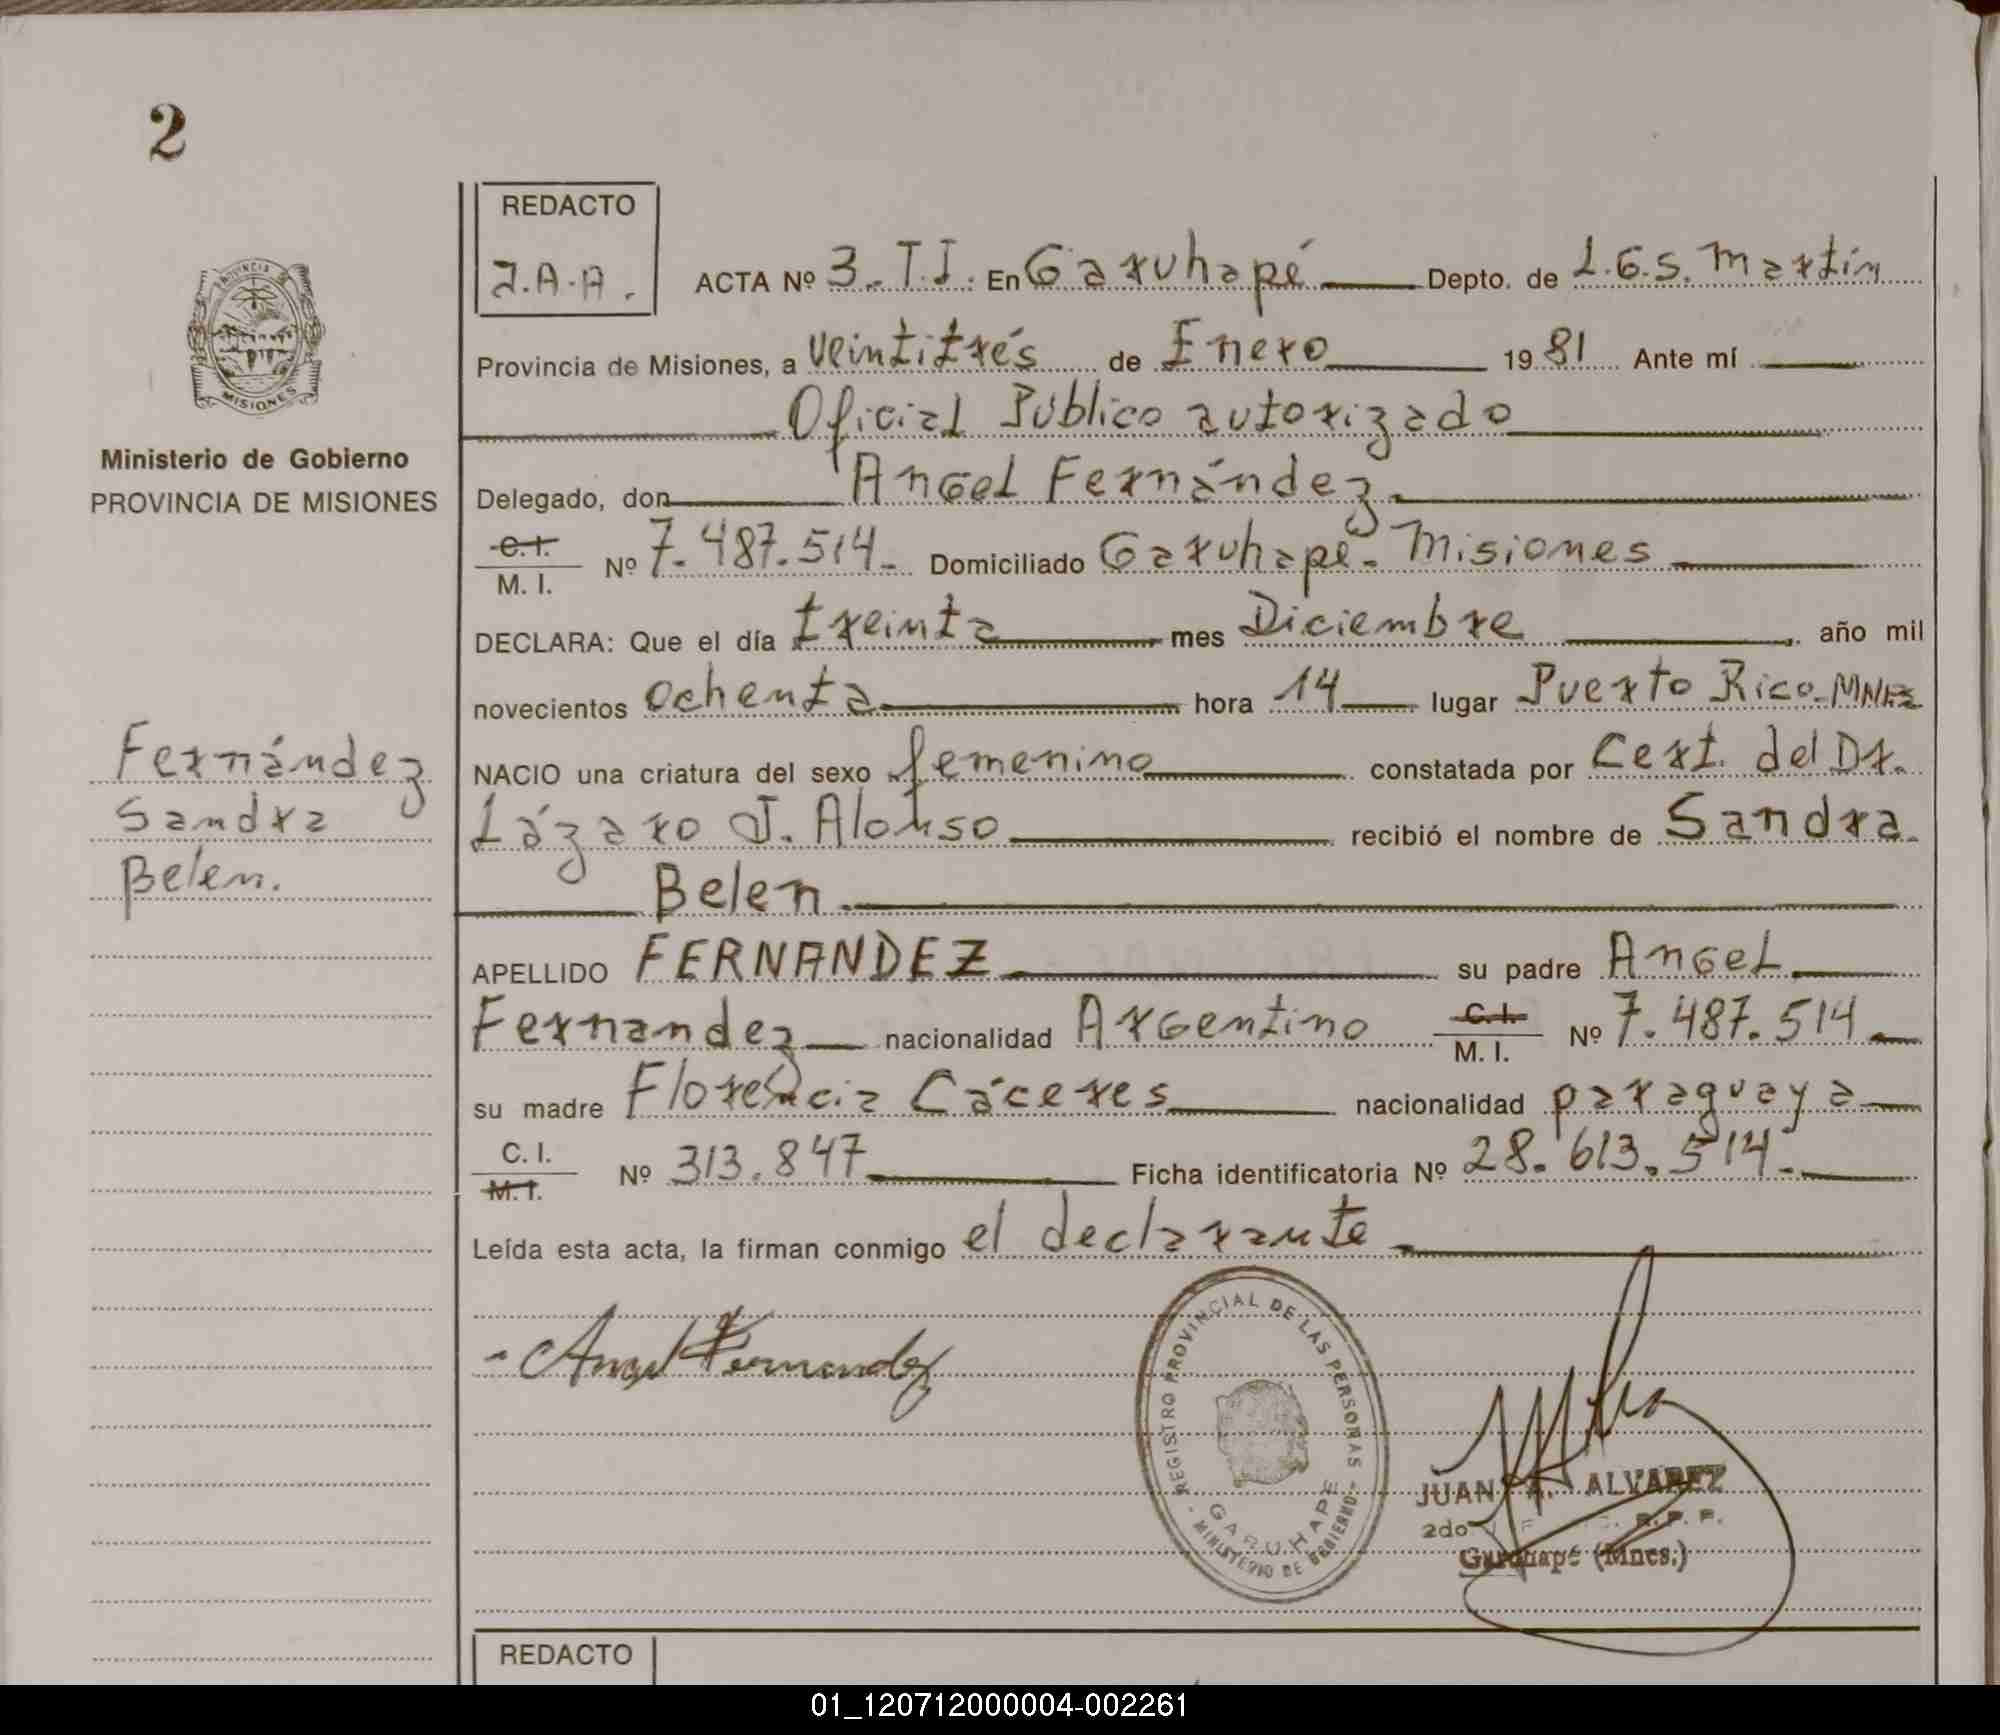 2
REDACTO
J.A.A.
ACTA Nº 3. T.I. En Garuhapé Depto. de L.G.S. Martín
Provincia de Misiones, a veintitrés de Enero 1981 Ante mí
Oficial Público autorizado
Delegado, don Angel Fernández.
C.I. / M. I. Nº 7.487.514. Domiciliado Garuhapé. Misiones
DECLARA: Que el día treinta mes Diciembre año mil
novecientos ochenta hora 14 lugar Puerto Rico. Mnes
NACIO una criatura del sexo femenino constatada por Cert. del Dr.
Lázaro J. Alonso recibió el nombre de Sandra
Belen
APELLIDO FERNANDEZ su padre Angel
Fernandez nacionalidad Argentino C.I. / M. I. Nº 7.487.514
su madre Florencia Cáceres nacionalidad paraguaya
C. I. / M.I. Nº 313.847 Ficha identificatoria Nº 28.613.514.
Leída esta acta, la firman conmigo el declarante
PROVINCIA DE MISIONES
Ministerio de Gobierno
PROVINCIA DE MISIONES
Fernández
Sandra
Belen.
Angel Fernandez
REGISTRO PROVINCIAL DE LAS PERSONAS
GARUHAPE
MINISTERIO DE GOBIERNO
JUAN A. ALVAREZ
2do R. P. P.
Garuhapé (Mnes.)
REDACTO
01_120712000004-002261